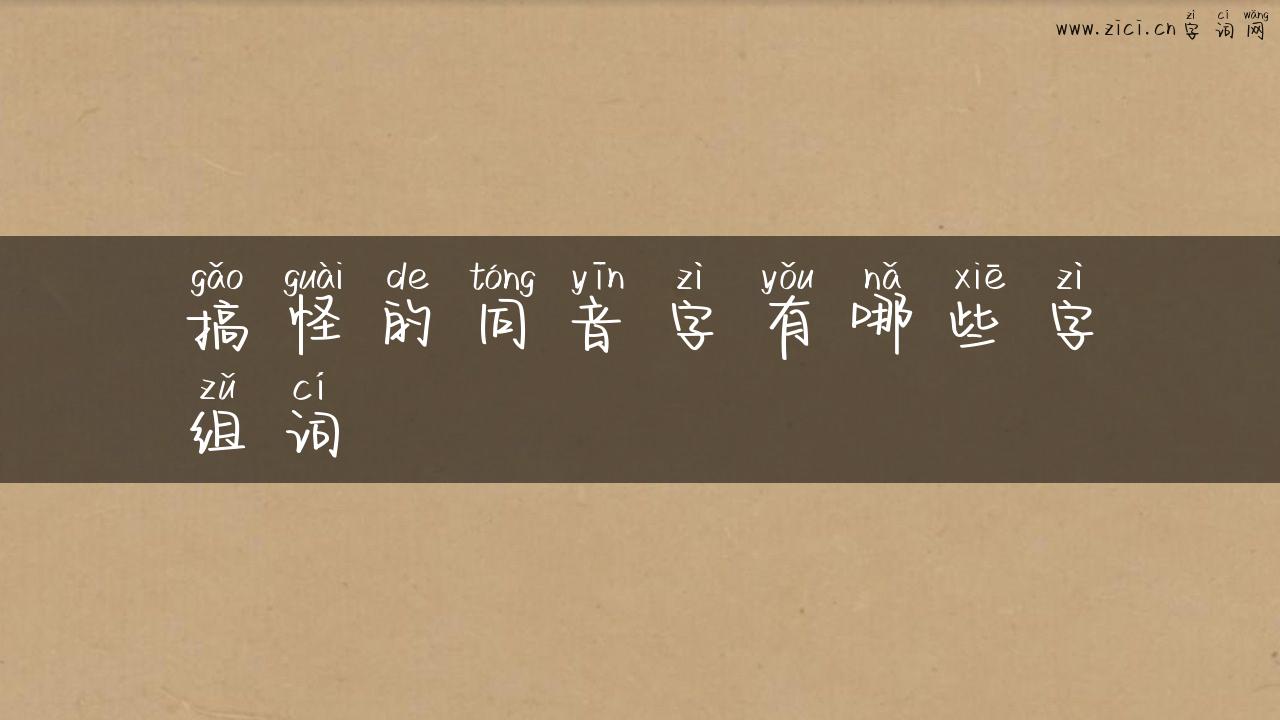 zì cí wǎng
www.zici.cn 字词网
gǎo guài de tóng yīn zì yǒu nǎ xiē zì
搞怪的同音字有哪些字
zǔ cí
组词